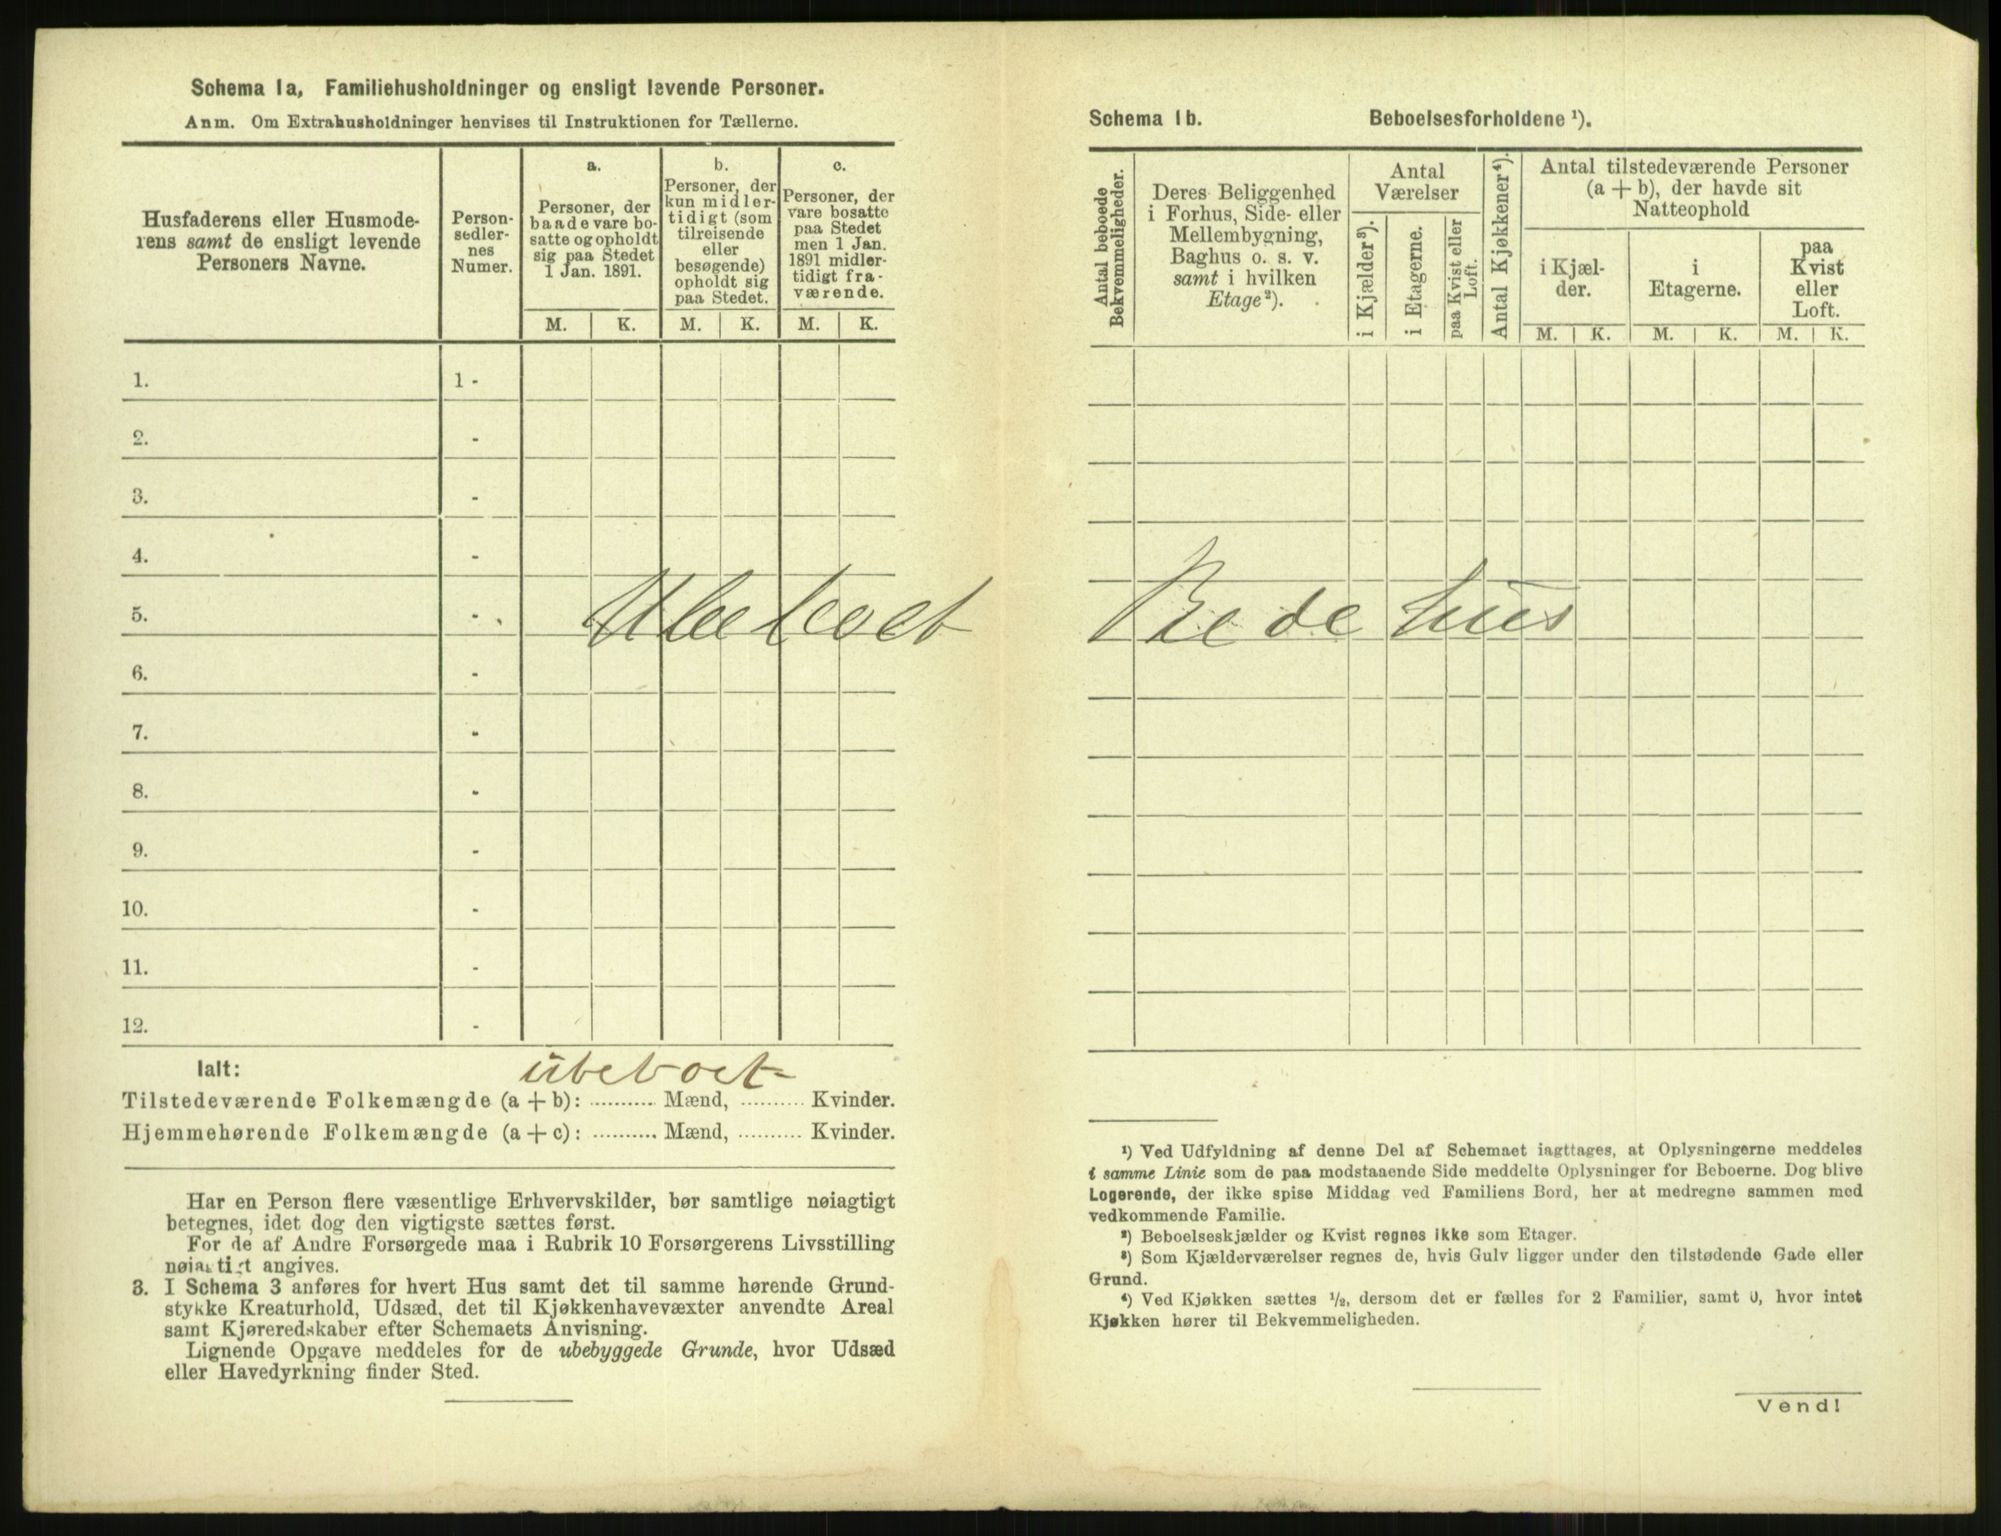 Schema 1a, Familiehusholdninger og ensligt levende Personer.
Anm. Om Extrahusholdninger henvises til Instruktionen for Tællerne.
Husfaderens eller Husmode-
rens samt de ensligt levende
Personers Navne.
Person-
sedler-
nes
Numer.
a.
Personer, der
baade vare bo-
satte og opholdt
sig paa Stedet
1 Jan. 1891.
b.
Personer, der
kun midler-
tidigt (som
tilreisende
eller
besøgende)
opholdt sig
paa Stedet.
c.
Personer, der
vare bosatte
paa Stedet
men 1 Jan.
1891 midler-
tidigt fra-
værende.
M. K. M. K. M. K.
1. 1 -
2. -
3. -
4. -
5. - Ubeboet
6. -
7. -
8. -
9. -
10. -
11. -
12. -
Ialt: ubeboet
Tilstedeværende Folkemængde (a + b): .......... Mænd, .......... Kvinder.
Hjemmehørende Folkemængde (a + c): .......... Mænd, .......... Kvinder.
Har en Person flere væsentlige Erhvervskilder, bør samtlige nøiagtigt
betegnes, idet dog den vigtigste sættes først.
For de af Andre Forsørgede maa i Rubrik 10 Forsørgerens Livsstilling
nøiagtigt angives.
3. I Schema 3 anføres for hvert Hus samt det til samme hørende Grund-
stykke Kreaturhold, Udsæd, det til Kjøkkenhavevæxter anvendte Areal
samt Kjøreredskaber efter Schemaets Anvisning.
Lignende Opgave meddeles for de ubebyggede Grunde, hvor Udsæd
eller Havedyrkning finder Sted.
Schema 1b. Beboelsesforholdene ¹).
Antal beboede
Bekvemmeligheder.
Deres Beliggenhed
i Forhus, Side- eller
Mellembygning,
Baghus o. s. v.
samt i hvilken
Etage ²).
Antal
Værelser
i Kjælder ³).
i Etagerne.
paa Kvist eller
Loft.
Antal Kjøkkener ⁴).
Antal tilstedeværende Personer
(a + b), der havde sit
Natteophold
i Kjæl-
der.
i
Etagerne.
paa
Kvist
eller
Loft.
M. K. M. K. M. K.
Bedehus
¹) Ved Udfyldning af denne Del af Schemaet iagttages, at Oplysningerne meddeles
i samme Linie som de paa modstaaende Side meddelte Oplysninger for Beboerne. Dog blive
Logerende, der ikke spise Middag ved Familiens Bord, her at medregne sammen med
vedkommende Familie.
²) Beboelseskjælder og Kvist regnes ikke som Etager.
³) Som Kjælderværelser regnes de, hvis Gulv ligger under den tilstødende Gade eller
Grund.
⁴) Ved Kjøkken sættes ½, dersom det er fælles for 2 Familier, samt 0, hvor intet
Kjøkken hører til Bekvemmeligheden.
Vend!